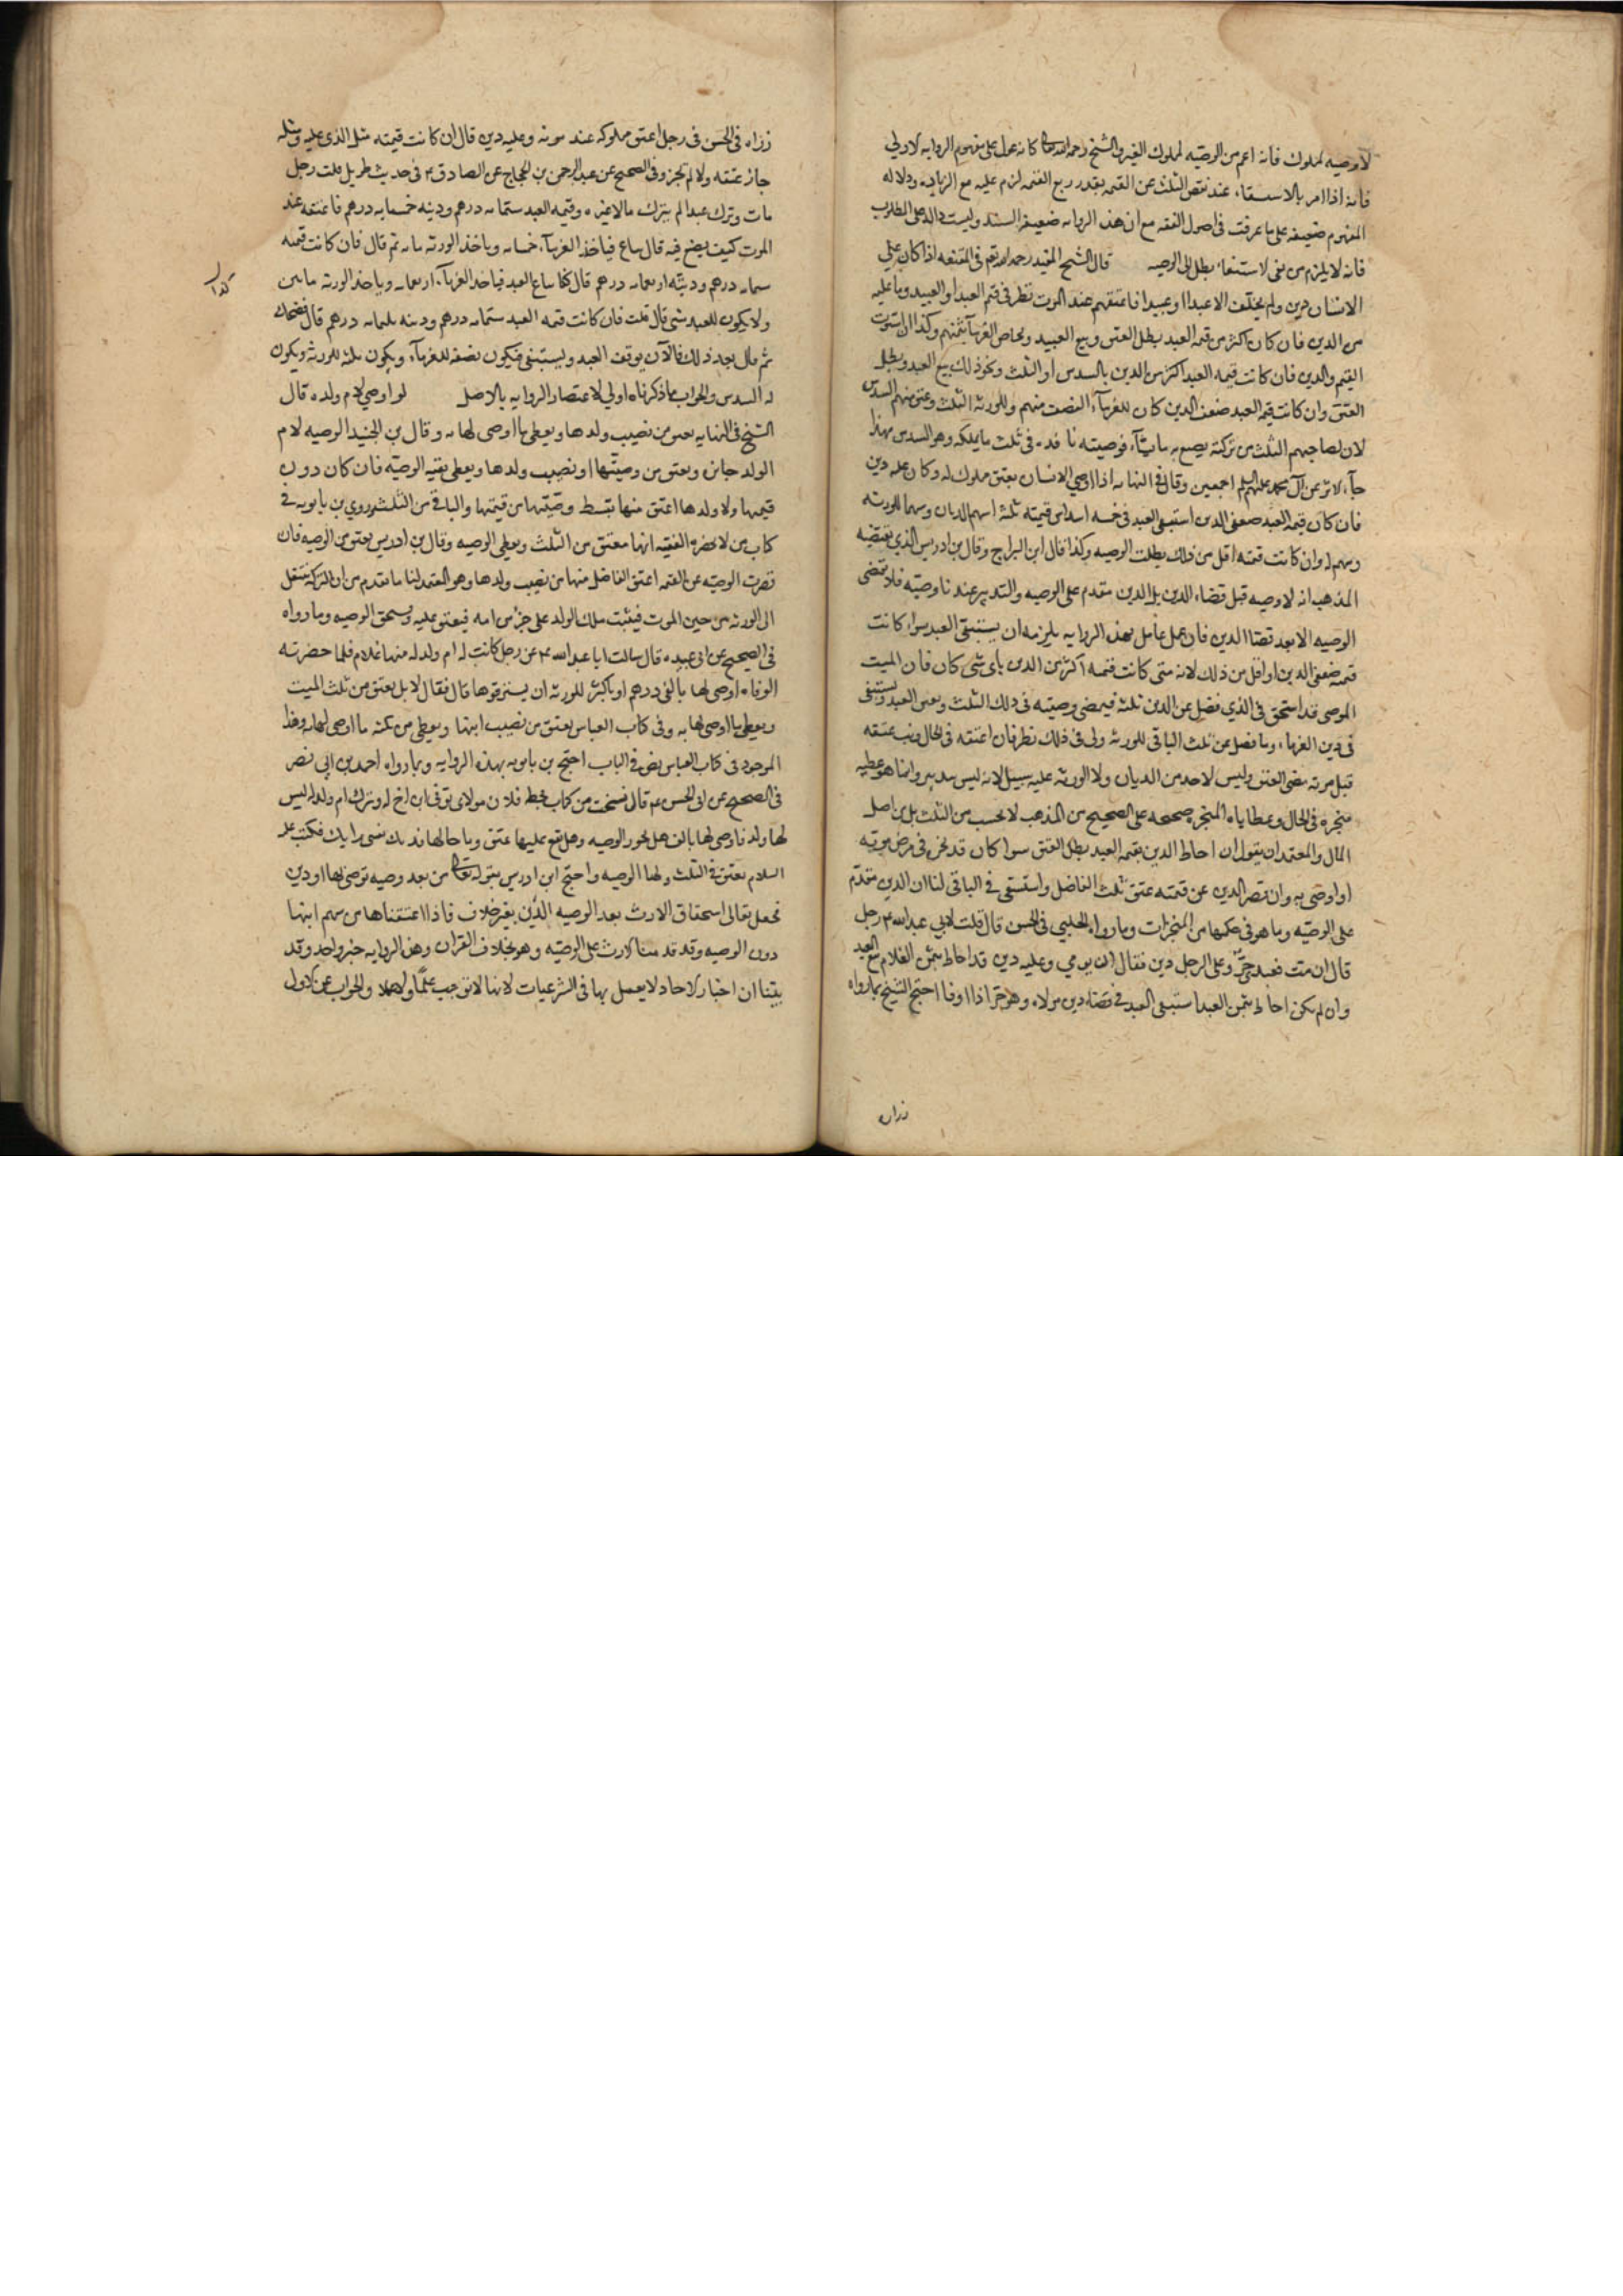 لا وصيه لمملوك فانه اعم من الوصيّه لمملوك الغير والشيخ رحمه الله كانه عول على مفهوم الروايه الاولى
فانه اذا امر بالاستسعاء عند نقص الثلث عن القيمه بقدر ربع القيمه لزم عليه مع الزياده ودلاله
المفهوم ضعيفه على ما عرفت فى اصول الفقه مع ان هذه الروايه ضعيفه السند وليست داله على المطلوب
فانه لا يلزم من نفى الاستسعاء بطلان الوصيه قال الشيخ المفيد رحمه الله فى المقنعه اذا كان على
الانسان دين ولم يخلّف الا عبدا او عبيدا فاعتقهم عند الموت نظر فى قيم العبد او العبيد وما عليه
من الدين فان كان اكثر من قيمه العبد بطل العتق وبيع العبيد وتحاص الغرمآء بثمنهم وكذا ان استوت
القيم والدين فان كانت قيمه العبد اكثر من الدين بالسدس او الثلث ونحو ذلك بيع العبد وبطل
العتق وان كانت قيمه العبد ضعف الدين كان للغرمآء النصف منهم وللورثه الثلث وعتق منهم السدس
لان لصاحبهم الثلث من تركته يصنع به ما يشآء فوصيته نافذه فى ثلث ما يملكه وهو السدس بهذا
جآء الاثر عن آل محمد عليهم السلم اجمعين وقال فى النهايه اذا اوصى الانسان بعتق مملوك له وكان عليه دين
فان كان قيمه العبد ضعفى الدين استسعى العبد فى خمسه اسداس قيمته ثلثه اسهم للديان وسهمان للورثه
وسهم له وان كانت قيمته اقل من ذلك بطلت الوصيه وكذا قال ابن البراج وقال بن ادريس الذي يقتضيه
المذهب انه لا وصيه قبل قضاء الدين بل الدين مقدم على الوصيه والتدبير عندنا وصيّه فلا تمضى
الوصيه الا بعد قضاء الدين فان عمل عامل بهذه الروايه يلزمه ان يستسعى العبد سواء كانت
قيمته ضعفى الدين او اقل من ذلك لانه متى كانت قيمته اكثر من الدين باى شى كان فان الميت
الموصى قد استحق فى الذي فضل عن الدين ثلثه فيمضى وصيته فى ذلك الثلث ويعتق العبد ويستسعى
فى دين الغرماء وما فضل عن ثلث الباقى للورثه ولى فى ذلك نظر فان اعتقه فى الحال وبت عتقه
قبل موته مضى العتق وليس لاحد من الديان ولا الورثه عليه سبيل لانه ليس بتدبير وانما هو عطيه
منجزه فى الحال وعطاياه المنجزه صحيحه على الصحيح من المذهب لا تحسب من الثلث بل من اصل
المال والمعتمد ان يقول ان احاط الدين بقيمه العبد بطل العتق سوا كان قد نجز فى مرض موته
او اوصى به وان قصر الدين عن قيمته عتق ثلث الفاضل واستسعى فى الباقى لنا ان الدين متقدّم
على الوصيّه وما هو فى حكمها من المنجزات وما رواه الحلبي فى الحسن قال قلت لابي عبد الله ع رجل
قال ان مت فعبدى حرّ وعلى الرجل دين فقال ان توفي وعليه دين قد احاط بثمن الغلام بيع العبد
وان لم يكن احاط بثمن العبد استسعى العبد فى قضاء دين مولاه وهو حرّ اذا اوفا احتج الشيخ بما رواه
زراره
زراره فى الحسن فى رجل اعتق مملوكه عند موته وعليه دين قال ان كانت قيمته مثل الذى عليه ومثله
جاز عتقه والا لم تجز وفى الصحيح عن عبد الرحمن بن الحجاج عن الصادق ع فى حديث طويل قلت رجل
مات وترك عبدا لم يترك مالا غيره وقيمه العبد ستمايه درهم ودينه خمسمايه درهم فاعتقه عند
الموت كيف يصنع فيه قال يباع فياخذ الغرمآء خمسمايه وياخذ الورثه مايه ثم قال فان كانت قيمته
ستمايه درهم ودينه اربعمايه درهم قال كذا يباع العبد فياخذ الغرمآء اربعمايه وياخذ الورثه مايتين
ولا يكون للعبد شى قال قلت فان كانت قيمه العبد ستمايه درهم ودينه ثلثمايه درهم قال فضحك
ثم قال بعد ذلك فالآن يوقف العبد ويستسعى فيكون نصفه للغرمآء ويكون ثلثه للورثه ويكون
له السدس والجواب ما ذكرناه اولى لاعتضاد الروايه بالاصل لو اوصي لام ولده قال
الشيخ فى النهايه يعتق من نصيب ولدها ويعطى ما اوصى لها به وقال بن الجنيد الوصيه لام
الولد جائزه ويعتق من وصيّتها او نصيب ولدها ويعطى بقيه الوصيّه فان كان دون
قيمتها ولا ولد لها اعتق منها بقسط وصيّتها من قيمتها والباقى من الثلث وروي بن بابويه فى
كتاب من لا يحضره الفقيه انها تعتق من الثلث ويعطى الوصيه وقال بن ادريس يعتق من الوصيه فان
قصرت الوصيّه عن القيمه اعتق الفاضل منها من نصيب ولدها وهو المعتمد لنا ما تقدم من ان التركه تنتقل
الى الورثه من حين الموت فيثبت ملك الولد على جزء من امه فيعتق عليه ويستحق الوصيه وما رواه
فى الصحيح عن ابى عبيده قال سالت ابا عبد الله ع عن رجل كانت له ام ولد له منها غلام فلما حضرته
الوفاه اوصى لها بالفى درهم او باكثر للورثه ان يسترقوها قال فقال لا بل يعتق من ثلث الميت
ويعطى ما اوصى لها به وفى كتاب العباس يعتق من نصيب ابنها ويعطى من ثلثه ما اوصى لها به وهذا
الموجود فى كتاب العباس نص فى الباب احتج بن بابويه بهذه الروايه وبما رواه احمد بن ابى نصر
فى الصحيح عن ابى الحسن ع قال نسخت من كتاب بخط فلان مولاى توفى ابن اخ له وترك ام ولد له ليس
لها ولد فاوصى لها بالف هل تجوز الوصيه وهل يقع عليها عتق وما حالها فدتك نفسى برايك فكتب عليه
السلام يعتق فى الثلث ولها الوصيه واحتج ابن ادريس بقوله تعالى من بعد وصيه توصى بها او دين
فجعل تعالى استحقاق الارث بعد الوصيه والدّين بغير خلاف فاذا اعتقناها من سهم ابنها
دون الوصيه وقد قدمنا الارث على الوصيّه وهو بخلاف القران وهذه الروايه خبر واحد وقد
بيّنّا ان اخبار الاحاد لا يعمل بها فى الشرعيات لانها لا توجب علمًا ولا عملا والجواب عن الاول
كذا